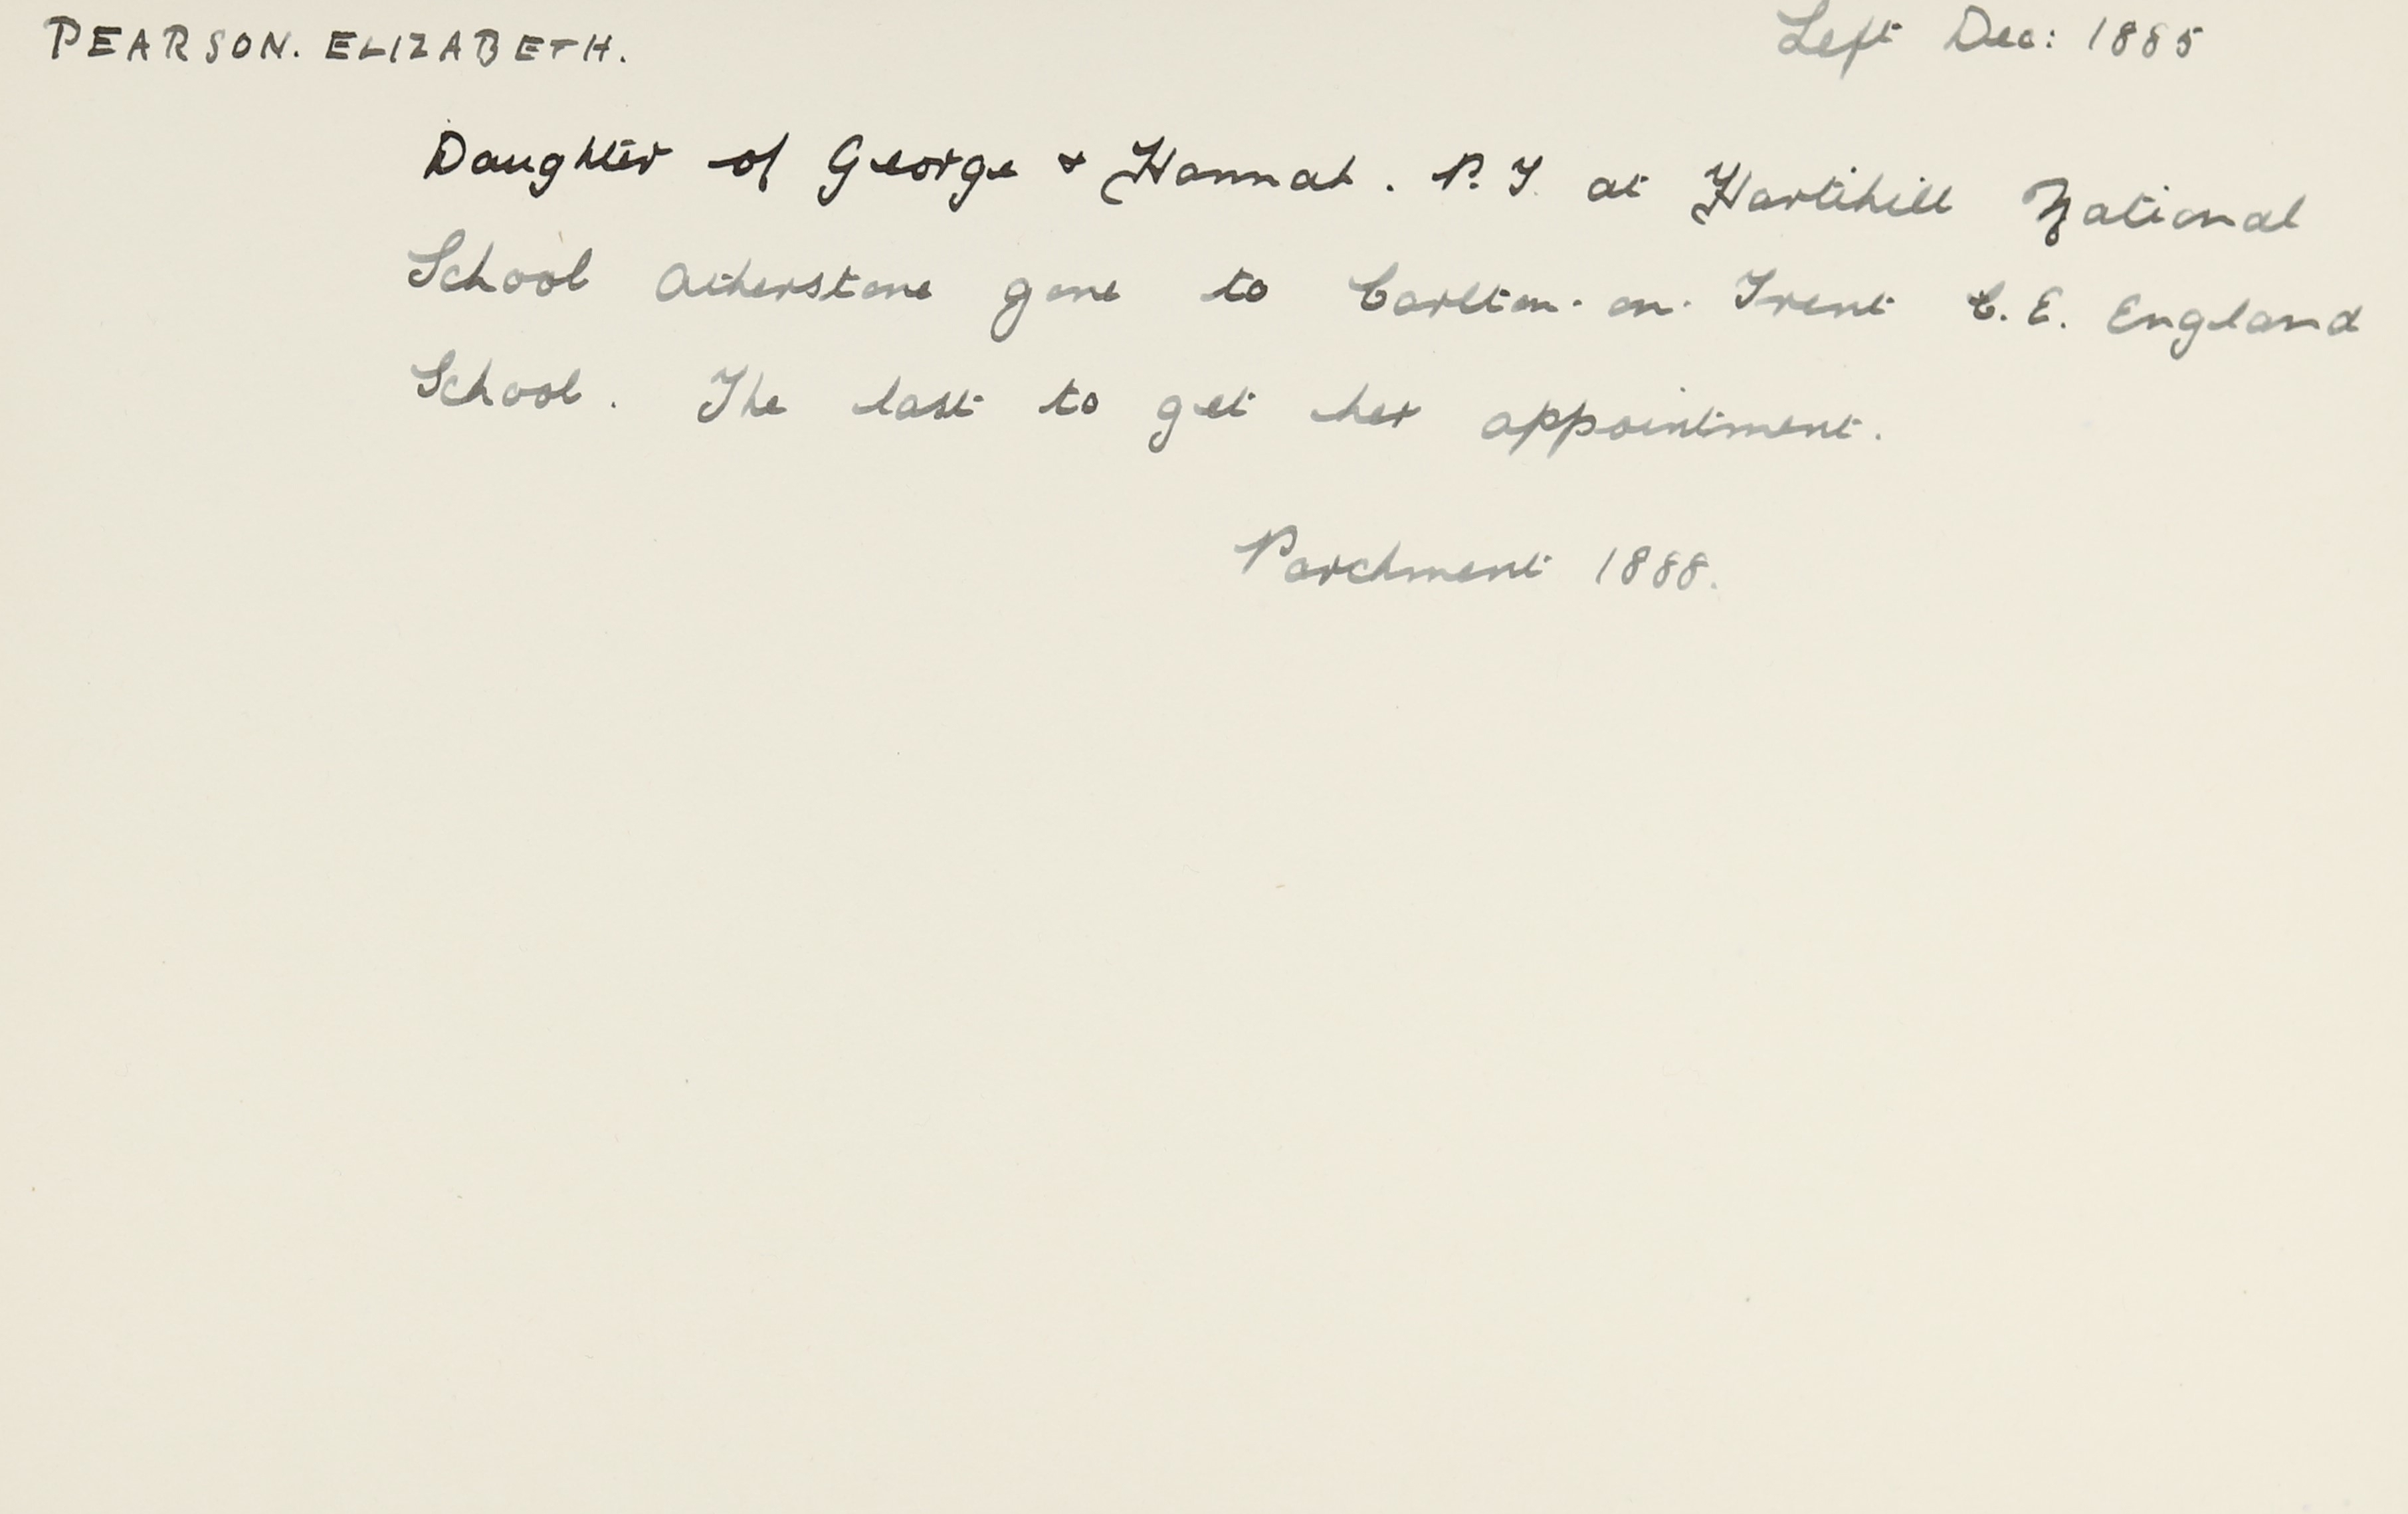 PEARSON. ELIZABETH. Left Dec: 1885
Daughter of George & Hannah. P.T. at Hartshill National
School Atherstone gone to Carlton-on-Trent C.E. England
School. The last to get her appointment.
Parchment 1888.